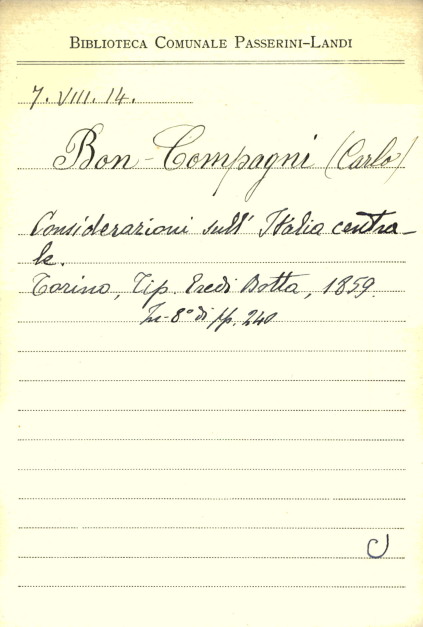 Biblioteca Comunale Passerini-Landi
7. VIII. 14.
Bon-Compagni (Carlo)
Considerazioni sull' Italia centra-
le.
Torino, Tip. Eredi Botta, 1859.
In-8° di pp. 240